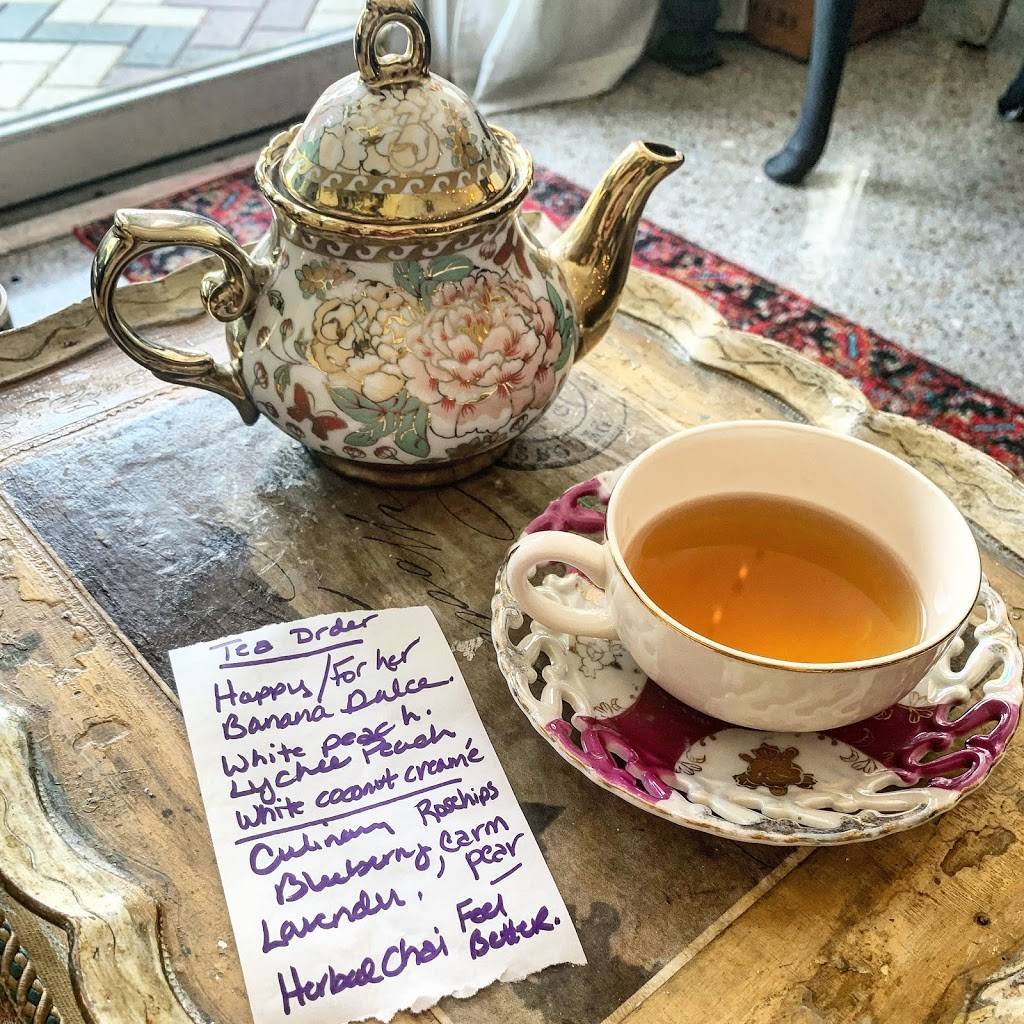 Tea Order
Happy / For her
Banana Dulce.
White peach.
Lychee Peach,
White coconut creamé
Culinary Rosehips
Blueberry, Carm
pear
Lavender.
Herbal Chai Feel
Better.